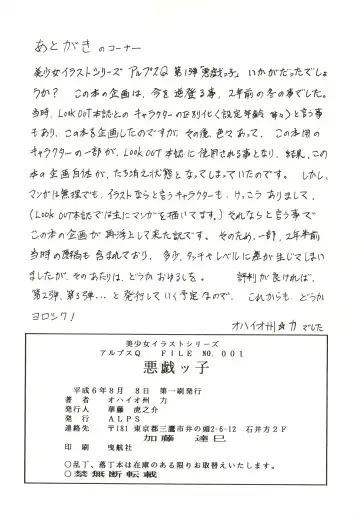 あとがき のコーナー
美少女イラストシリーズ アルプスQ 第1弾「悪戯っ子」いかがだったでしょ
うか？ この本の企画は、今を遡る事、2年前の冬の事でした。
当時、LOOK OUT本誌との キャラクターの区別化く設定年齢 etc) と言う事
もあり、この本を企画したのですが、その後、色々あって、この本用の
キャラクターの一部が、LOOK OUT 本誌に使用される事となり、結果、この
本の企画自体が、たち消え状態となってしまっていたのです。しかし、
マンガは無理でも、イラストならと言うキャラクターも、けっこうありまして、
(LOOK OUT本誌では主にマンガを描いてます。) それならと言う事で
この本の企画が再浮上して来た訳です。そのため、一部、2年半前
当時の原稿も含まれており、多少、タッチやレベルに差が生じてしまい
ましたが、そのあたりは、どうかおゆるしを。 評判が良ければ、
第2弾、第3弾…と発行していく予定なので、これからも、どうか
ヨロシク！
オハイオ州☆力でした
美少女イラストシリーズ
アルプスQ FILE NO. 001
悪戯ッ子
平成6年8月 8日 第一刷発行
著者 オハイオ州 力
発行人 華藤 虎之介
発行 ALPS
連絡先 〒181 東京都三鷹市井の頭2-6-12 石井方2F
加藤 達巳
印刷 曳航社
○乱丁、落丁本は在庫のある限りお取替えいたします。
○禁無断転載